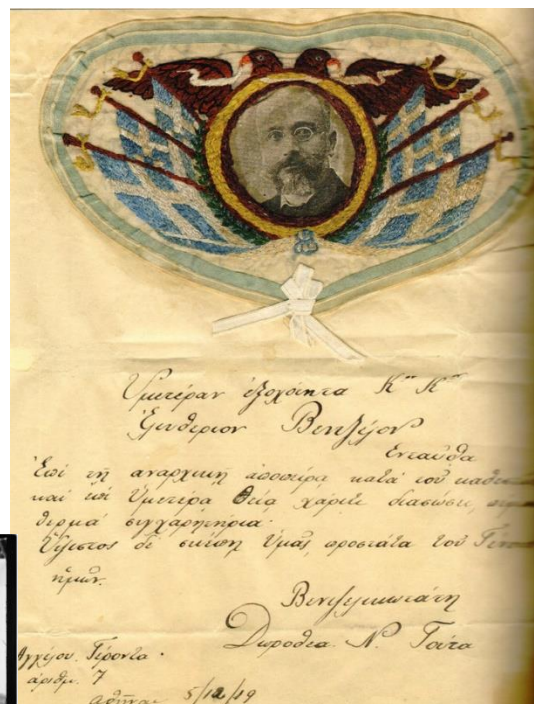 Ὑμετέραν ἐξοχότητα Κον Κον
Ἐλευθέριον Βενιζέλον
Ἐνταῦθα
Ἐπὶ τῇ ἀναρχικῇ ἀποπείρᾳ κατὰ τοῦ
καὶ ἐπὶ Ὑμετέρᾳ θείᾳ χάριτι διασώσει
θερμὰ συγχαρητήρια.
Ὕψιστος δὲ σκέποι Ὑμᾶς, προστάτα τοῦ
ἡμῶν.
Βενιζελικωτάτη
Δωροθέα Ν. Τούτα
Ἀγγέλου Γέροντα.
ἀριθμ. 7
Ἀθῆναι 5/12/19